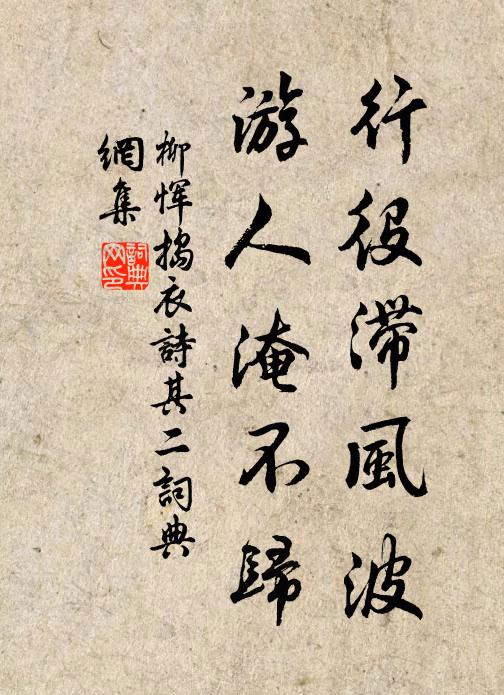 行役滞風波
游人淹不歸
柳惲搗衣詩其二詞典
網集
詞典
网印